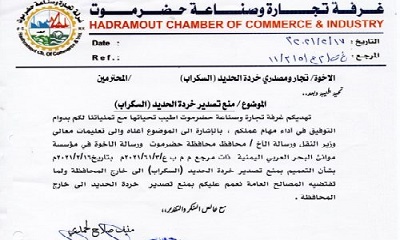 غرفة تجارة وصناعة حضرموت
HADRAMOUT CHAMBER OF COMMERCE & INDUSTRY
التاريخ : ٢٠٢١/٢/١٧
Date :
المرجع :
Ref. :
الاخوة/ تجار ومصدري خردة الحديد (السكراب) المحترمين
تحية طيبة وبعد،،
الموضوع/ منع تصدير خردة الحديد (السكراب)
تهديكم غرفة تجارة وصناعة حضرموت اطيب تحياتها مع تمنياتنا لكم بدوام
التوفيق في اداء مهام عملكم ، بالإشارة الى الموضوع أعلاه والى تعليمات معالي
وزير النقل ورسالة الأخ / محافظ محافظة حضرموت ورسالة الاخوة في مؤسسة
موانئ البحر العربي اليمنية ذات مرجع م م ب ع/٢٠٢١/٢/ بتاريخ ٢٠٢١/٢/١٦م
بشأن التعميم بمنع تصدير خردة الحديد (السكراب) الى خارج المحافظة ولما
تقتضيه المصالح العامة نعمم عليكم بمنع تصدير خردة الحديد الى خارج
المحافظة .
مع خالص الشكر والتقدير،،